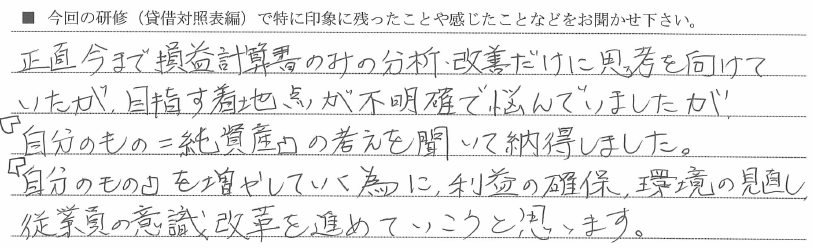 ■ 今回の研修（貸借対照表編）で特に印象に残ったことや感じたことなどをお聞かせ下さい。
正直今まで損益計算書のみの分析・改善だけに思考を向けて
いたが、目指す着地点が不明確で悩んでいましたが、
『自分のもの＝純資産』の考えを聞いて納得しました。
『自分のもの』を増やしていく為に、利益の確保、環境の見直し、
従業員の意識改革を進めていこうと思います。